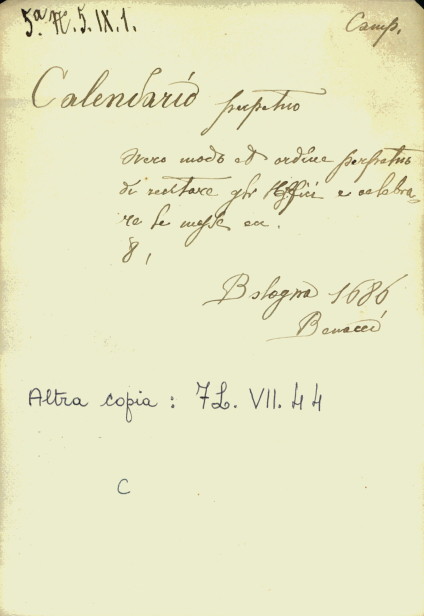 5.ª H. 5. IX. 1.
Camp.
Calendario perpetuo
overo modo et ordine perpetuo
di recitare gli Uffici e celebra-
re le messe ec.
8,
Bologna 1686
Benacci
Altra copia : 7L. VII. 44
C